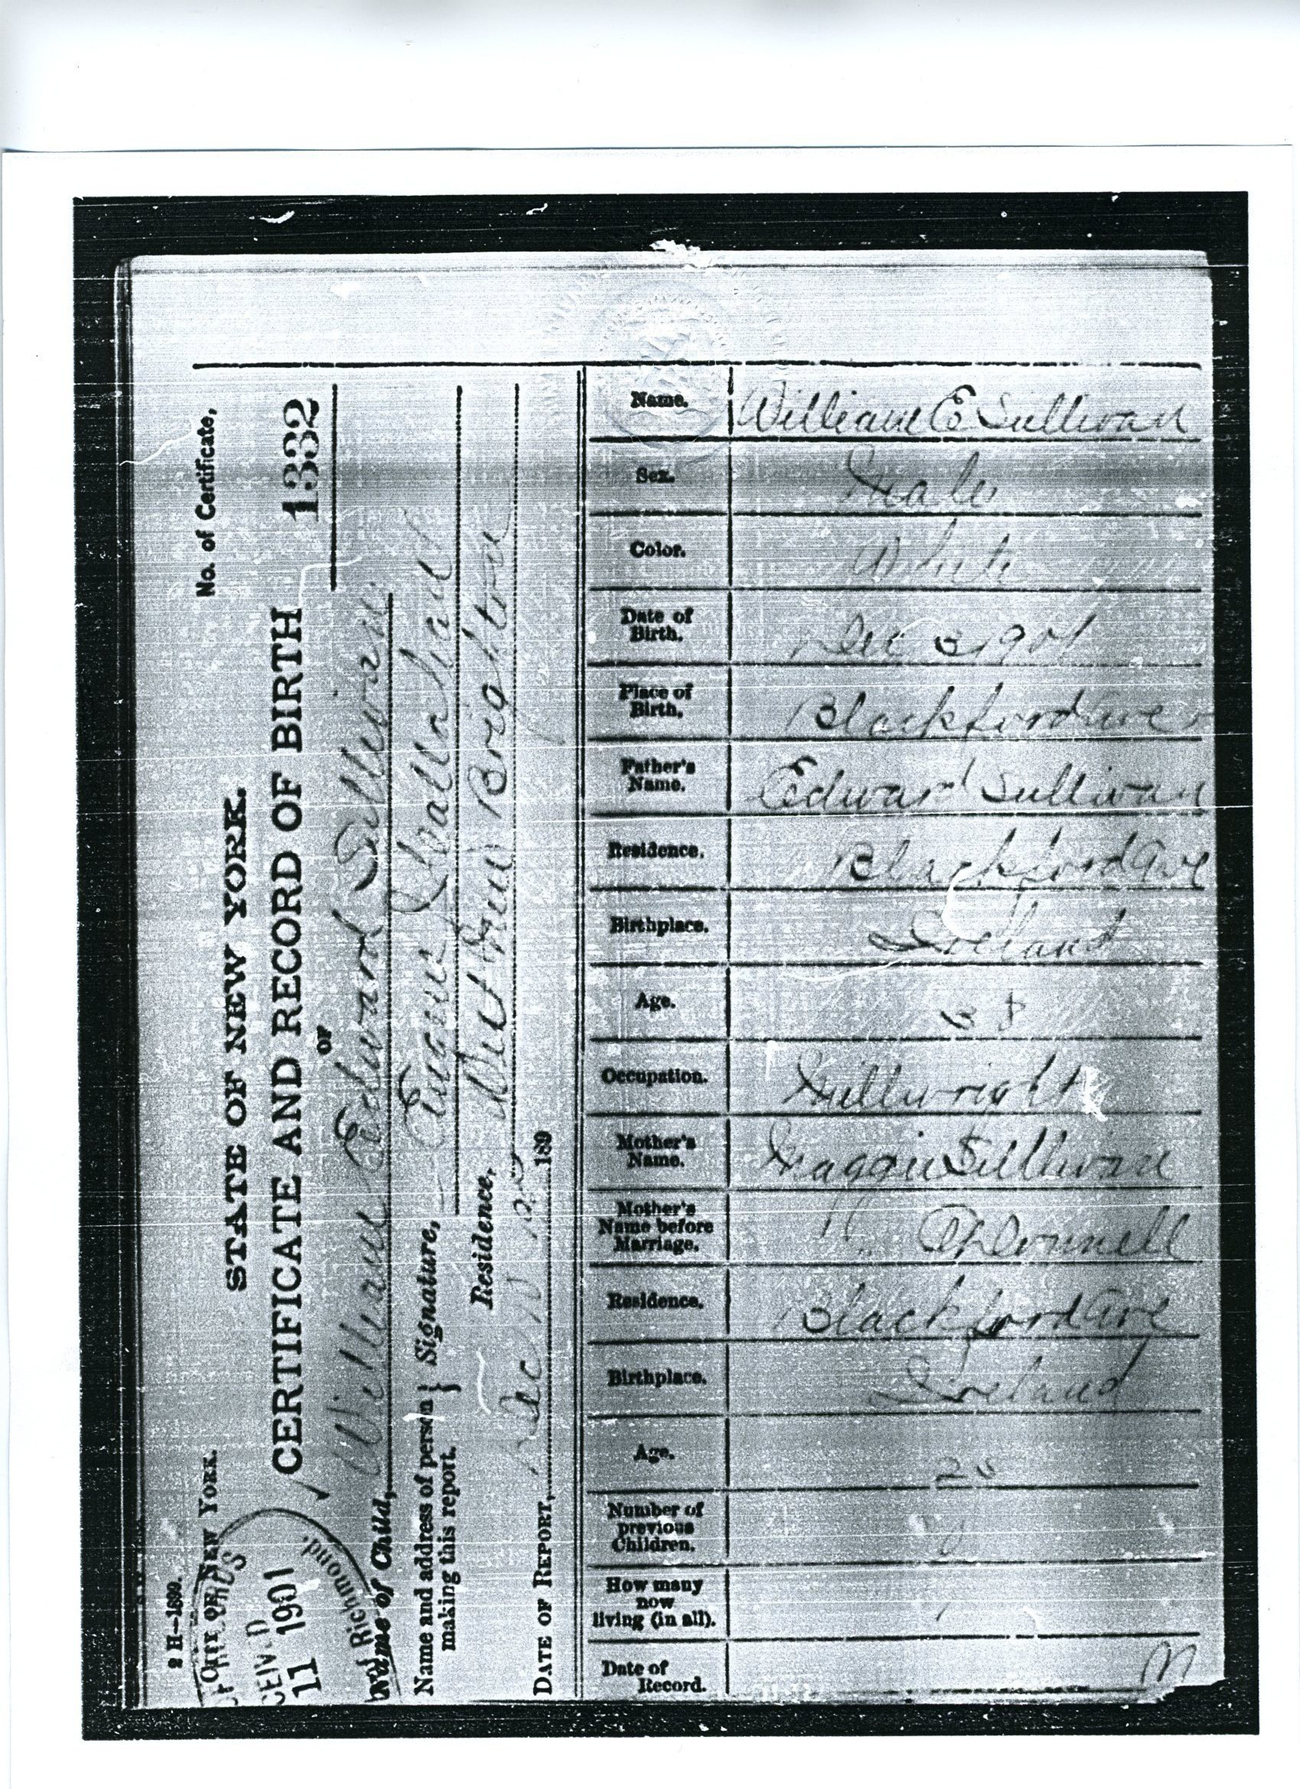 2 H—1899.
CITY OF NEW YORK.
STATE OF NEW YORK.
No. of Certificate,
CERTIFICATE AND RECORD OF BIRTH
1332
OF
RECEIVED
11 1901
Richmond.
Name of Child, William Edward Sullivan
Name and address of person making this report. } Signature, Eugene
Residence, West New Brighton
DATE OF REPORT, Dec 189
Name. William E Sullivan
Sex. Male
Color. White
Date of Birth. Dec 3 1901
Place of Birth. Blackford Ave
Father's Name. Edward Sullivan
Residence. Blackford Ave
Birthplace. Ireland
Age. 38
Occupation. Millwright
Mother's Name. Maggie Sullivan
Mother's Name before Marriage. " O'Donnell
Residence. Blackford Ave
Birthplace. Ireland
Age.
Number of previous Children. 0
How many now living (in all). 1
Date of Record.